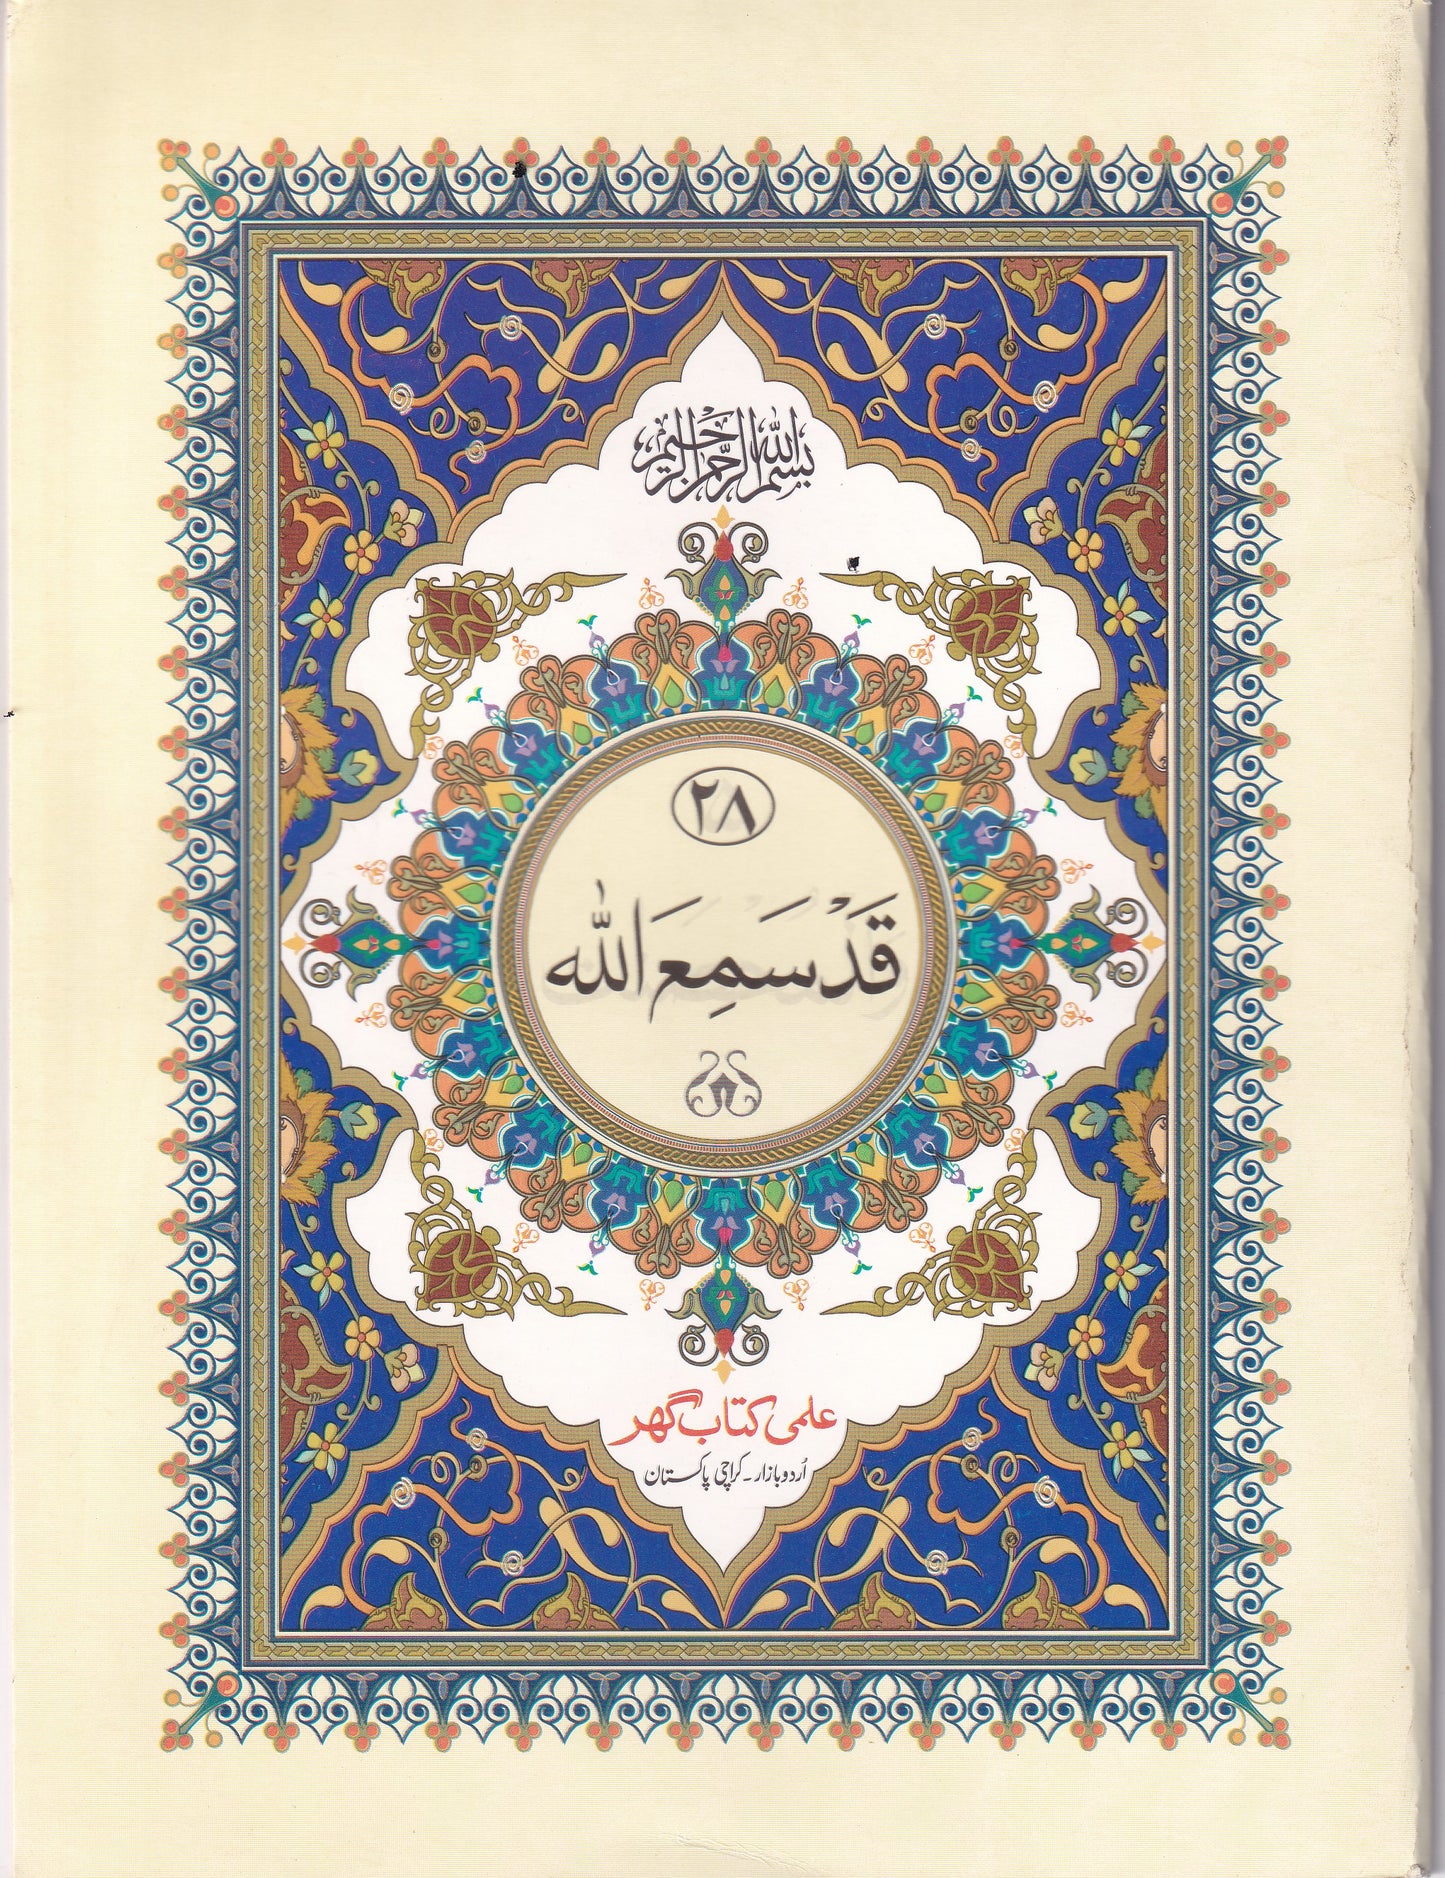 بسم الله الرحمن الرحيم
٢٨
قَدْ سَمِعَ اللّٰه
علمی کتاب گھر
اُردو بازار ۔ کراچی پاکستان